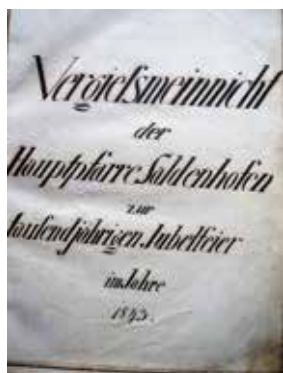 Vergiefsmeinnicht
der
Hauptpfarre Saldenhofen
zur
tausendjährigen Jubelfeier
im Jahre
1843.